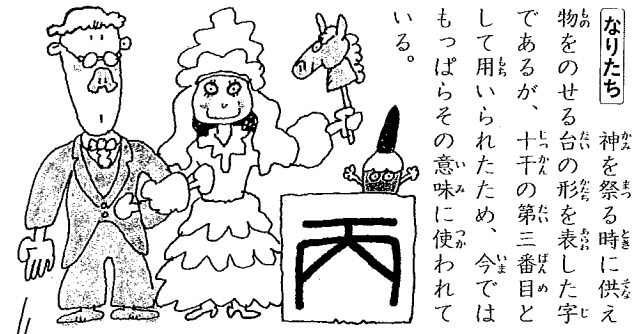 なりたち
神を祭る時に供え
物をのせる台の形を表した字
であるが、十干の第三番目と
して用いられたため、今では
もっぱらその意味に使われて
いる。
丙